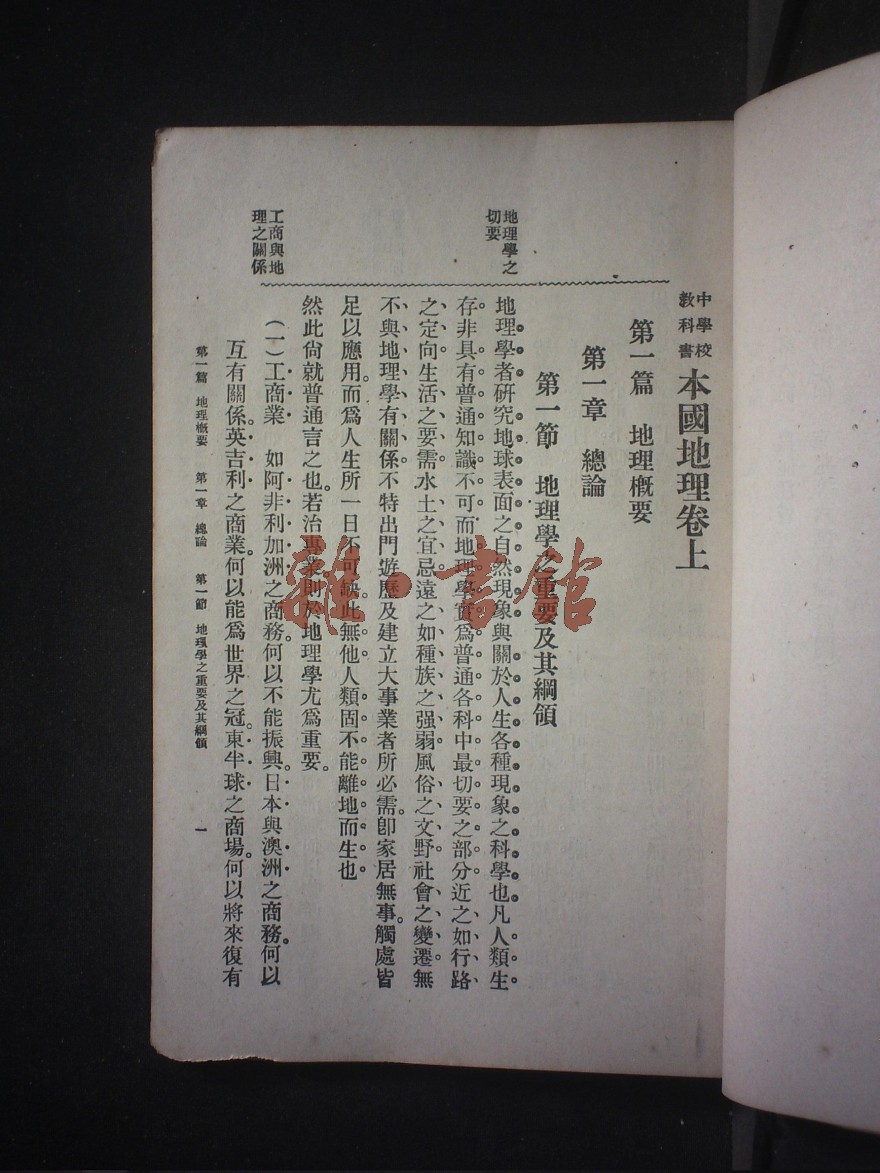 中學校教科書 本國地理卷上
第一篇 地理槪要
第一章 總論
第一節 地理學之重要及其綱領
地理學之切要
地理學者硏究地球表面之自然現象與關於人生各種現象之科學也凡人類生
存非具有普通知識不可而地理學實爲普通各科中最切要之部分近之如行路
之定向生活之要需水土之宜忌遠之如種族之强弱風俗之文野社會之變遷無
不與地理學有關係不特出門遊歷及建立大事業者所必需。卽家居無事。觸處皆
足以應用。而爲人生所一日不可缺此無他人類固不能離地而生也
然此尙就普通言之也。若治專業則於地理學尤爲重要。
工商與地理之關係
(一)工商業 如阿非利加洲之商務。何以不能振興。日本與澳洲之商務。何以
互有關係。英吉利之商業。何以能爲世界之冠。東半球之商場。何以將來復有
第一篇 地理槪要 第一章 總論 第一節 地理學之重要及其綱領 一
雜·書館